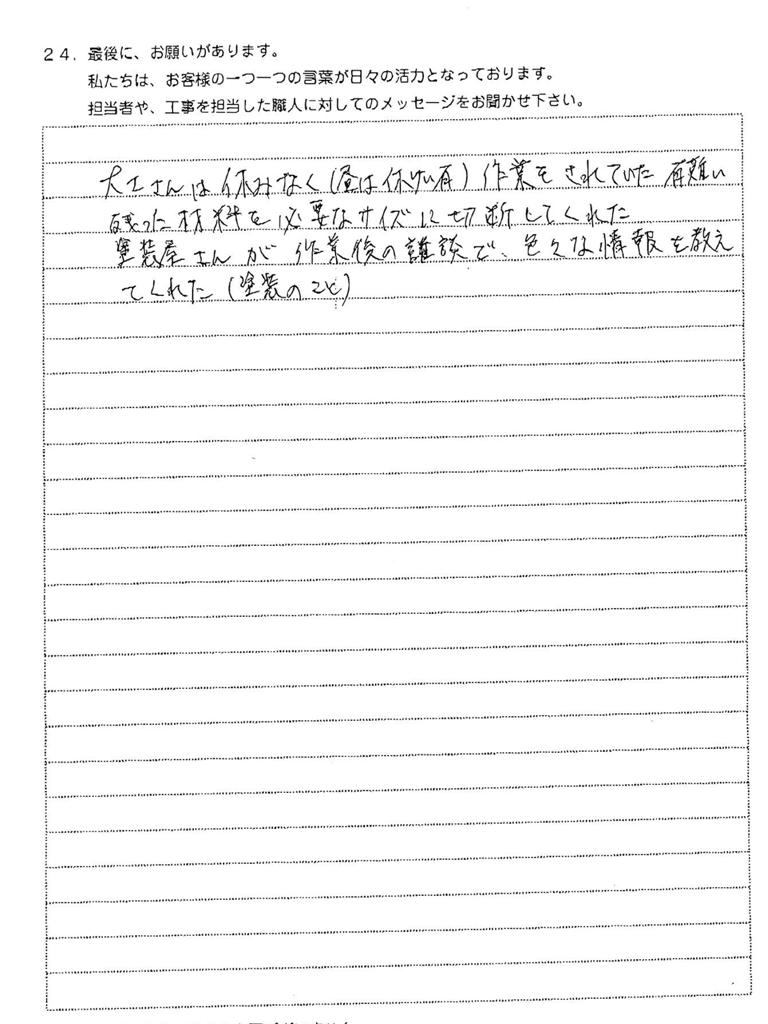 ２４．最後に、お願いがあります。
私たちは、お客様の一つ一つの言葉が日々の活力となっております。
担当者や、工事を担当した職人に対してのメッセージをお聞かせ下さい。
大工さんは休みなく（昼は休けい有）作業をされていた 有難い
残った材料を必要なサイズに切断してくれた
塗装屋さんが 作業後の雑談で、色々な情報を教え
てくれた（塗装のこと）